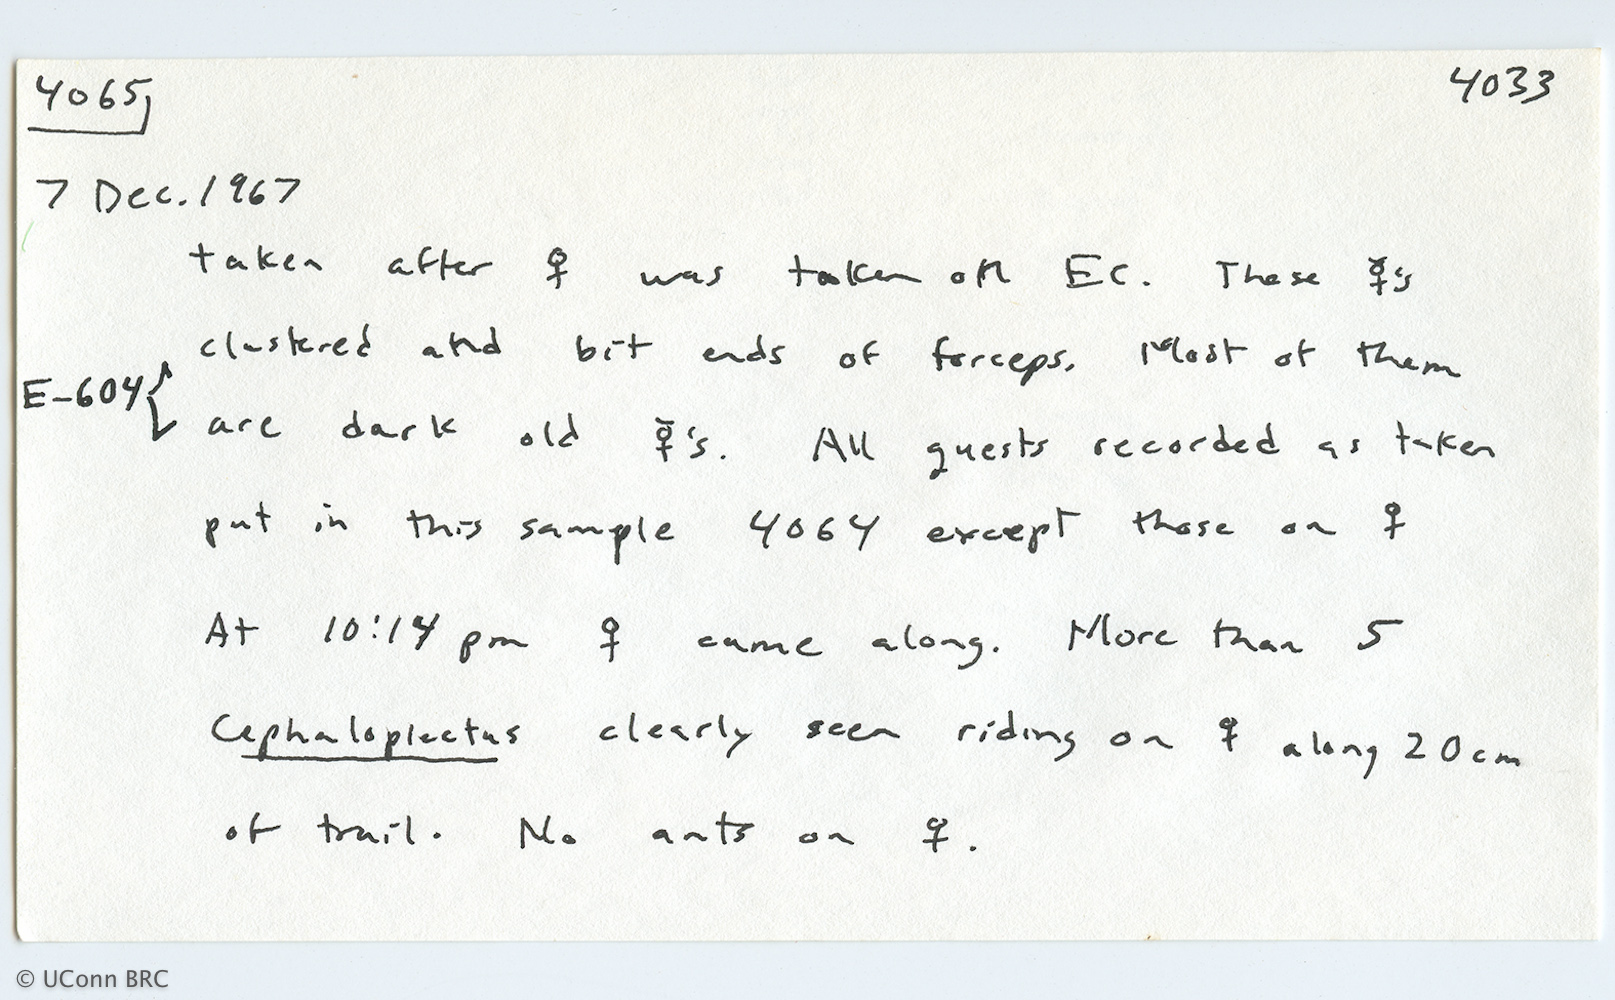 4065
4033
7 Dec. 1967
taken after ♀ was taken off Ec. These ☿'s
clustered and bit ends of forceps. Most of them
E-604
are dark old ☿'s. All guests recorded as taken
put in this sample 4064 except those on ♀
At 10:14 pm ♀ came along. More than 5
Cephaloplectus clearly seen riding on ♀ along 20cm
of trail. No ants on ♀.
© UConn BRC